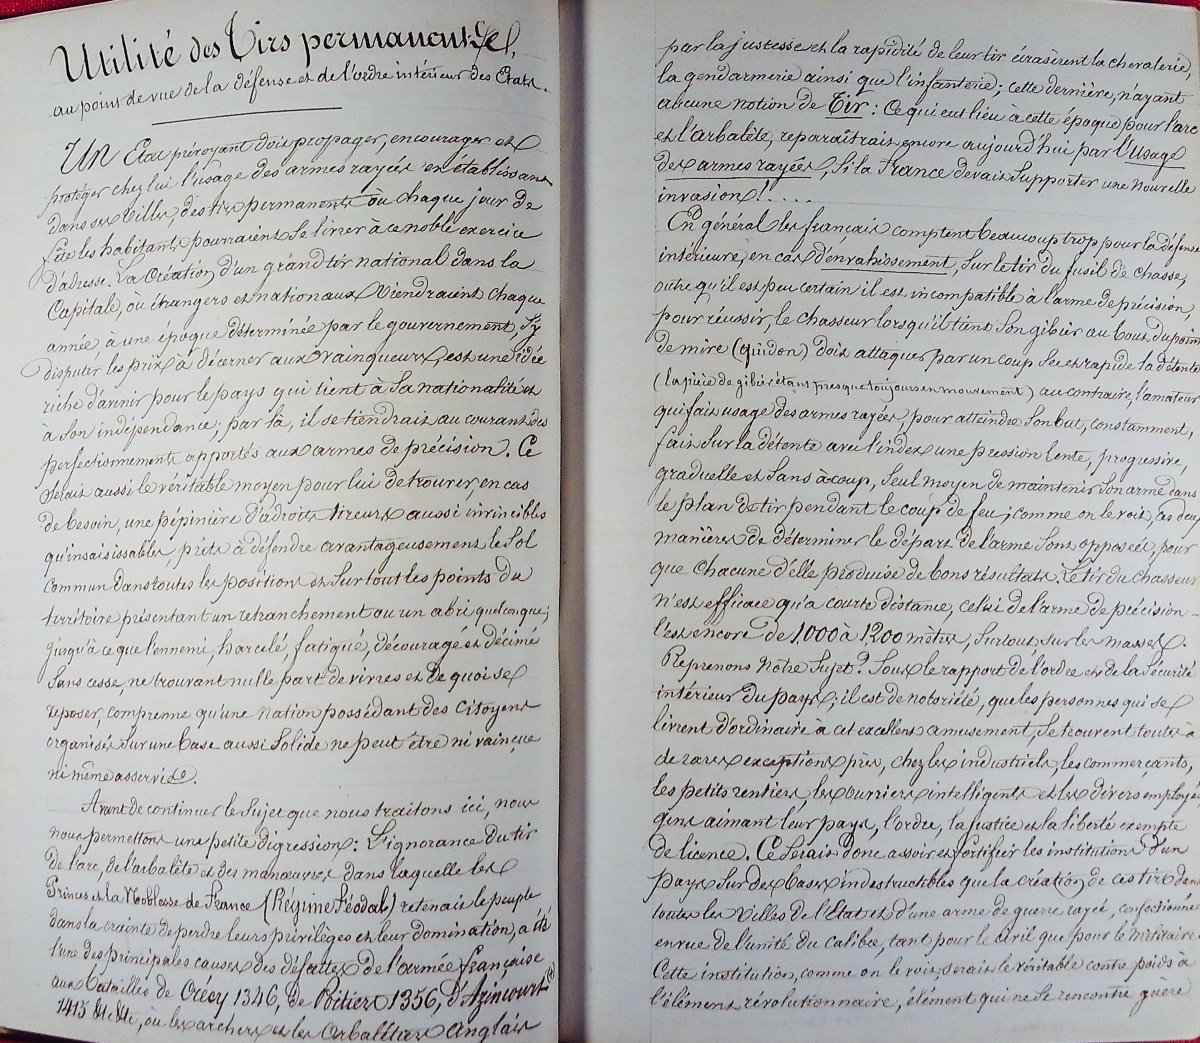 Utilité des Tirs permanents
au point de vue de la défense et de l'ordre intérieur des Etats.
Un Etat prévoyant doit propager, encourager et
protéger chez lui l'usage des armes rayées en établissant
dans ses villes des tirs permanents où chaque jour de
fête les habitants pourraient se livrer à ce noble exercice
d'adresse. La création d'un grand tir national dans la
Capitale, où étrangers et nationaux viendraient chaque
année à une époque déterminée par le gouvernement, s'y
disputer les prix à décerner aux vainqueurs est une idée
riche d'avenir pour le pays qui tient à sa nationalité et
à son indépendance; par là, il se tiendrait au courant des
perfectionnements apportés aux armes de précision. Ce
serait aussi le véritable moyen pour lui de trouver, en cas
de besoin, une pépinière d'adroits tireurs aussi invincibles
qu'insaisissables, prêts à défendre avantageusement le sol
commun dans toutes les positions et sur tout les points du
territoire présentant un retranchement ou un abri quelconque;
jusqu'à ce que l'ennemi, harcelé, fatigué, découragé et décimé
sans cesse, ne trouvant nulle part de vivres et de quoi se
reposer, comprenne qu'une nation possédant des citoyens
organisés sur une base aussi solide ne peut être ni vaincue
ni même asservie.
Avant de continuer le sujet que nous traitons ici, nous
nous permettons une petite digression: L'ignorance du tir
de l'arc, de l'arbalète et des manœuvres dans laquelle les
Princes et la Noblesse de France (Régime féodal) retenait le peuple
dans la crainte de perdre leurs privilèges et leur domination, a été
l'une des principales causes des défaites de l'armée française
aux batailles de Crécy 1346, de Poitiers 1356, d'Azincourt
1415 &c &c, où les archers et les Arbalètes Anglais
par la justesse et la rapidité de leur tir écrasèrent la chevalerie,
la gendarmerie ainsi que l'infanterie; cette dernière, n'ayant
aucune notion de Tir: Ce qui eut lieu à cette époque pour l'arc
et l'arbalète, reparaîtrait encore aujourd'hui par l'usage
des armes rayées, si la France devait supporter une nouvelle
invasion!.....
En général les français comptent beaucoup trop pour la défense
intérieure, en cas d'envahissement, sur le tir du fusil de chasse,
outre qu'il est peu certain il est incompatible à l'arme de précision,
pour réussir, le chasseur lorsqu'il tient son gibier au bout du point
de mire (guidon) doit attaquer par un coup sec et rapide la détente
(la pièce de gibier étant presque toujours en mouvement) au contraire, l'amateur
qui fait usage des armes rayées, pour atteindre son but, constamment,
fait sur la détente avec l'index une pression lente, progressive,
graduelle et sans à coup, seul moyen de maintenir son arme dans
le plan de tir pendant le coup de feu; comme on le voit, ces deux
manières de déterminer le départ de l'arme sont opposées, pour
que chacune d'elle produise de bons résultats. Le tir du chasseur
n'est efficace qu'à courte distance, celui de l'arme de précision
l'est encore de 1000 à 1200 mètres, surtout sur les masses.
Reprenons notre sujet. Sous le rapport de l'ordre et de la sécurité
intérieur du pays; il est de notoriété, que les personnes qui se
livrent d'ordinaire à cet excellent amusement, se trouvent toutes à
de rares exceptions près, chez les industriels, les commerçants,
les petits rentiers, les ouvriers intelligents et les divers employés
gens aimant leur pays, l'ordre, la justice et la liberté exempte
de licence. Ce serait donc asseoir et fortifier les institutions d'un
pays sur des bases indestructibles que la création de ces tirs dans
toutes les villes de l'Etat et d'une arme de guerre rayée, confectionnée
en vue de l'unité du calibre, tant pour le civil que pour le militaire.
Cette institution, comme on le voit, serait le véritable contre poids à
l'élément révolutionnaire, élément qui ne se rencontre guère